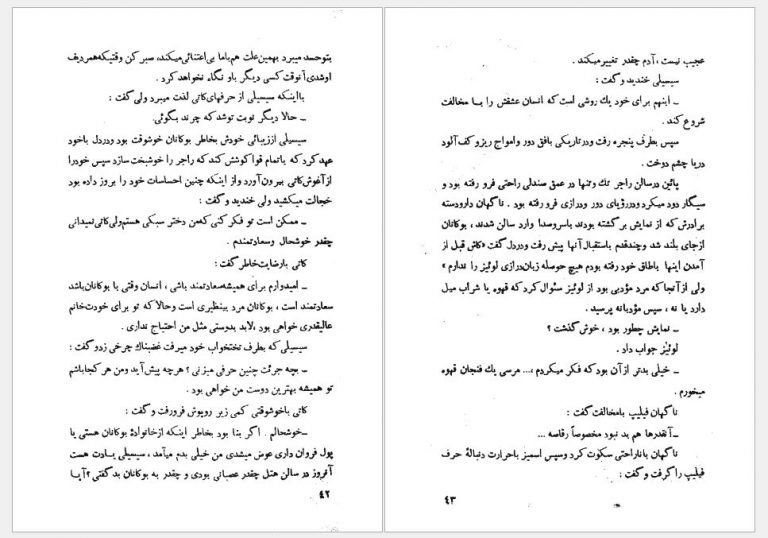 بتوحسد میبرد بهمین علت هم باما بی‌اعتنائی میکند، صبر کن وقتیکه همردیف
اوشدی آنوقت کسی دیگر باو نگاه نخواهد کرد.
بااینکه سیسیلی از حرفهای کاتی لذت میبرد ولی گفت:
ـ حالا دیگر نوبت توشد که چرند بگوئی.
سیسیلی از زیبائی خودش بخاطر بوکانان خوشوقت بود ودردل باخود
عهد کرد که باتمام قوا کوشش کند که راجر را خوشبخت سازد سپس خودرا
از آغوش کاتی بیرون آورد واز اینکه چنین احساسات خود را بروز داده بود
خجالت میکشید ولی خندید و گفت:
ـ ممکن است تو فکر کنی که من دختر سبکی هستم ولی کاتی نمیدانی
چقدر خوشحال وسعادتمندم.
کاتی بارضایت خاطر گفت:
ـ امیدوارم برای همیشه سعادتمند باشی، انسان وقتی با بوکانان باشد
سعادتمند است، بوکانان مرد بینظیری است وحالا که تو برای خودت خانم
عالیقدری خواهی بود، لابد بدوستی مثل من احتیاج نداری.
سیسیلی که بطرف تختخواب خود میرفت غضبناك چرخی زد و گفت:
ـ بچه جرئت چنین حرفی میزنی؟ هرچه پیش آید ومن هرکجا باشم
تو همیشه بهترین دوست من خواهی بود.
کاتی باخوشوقتی کمی زیر روپوش فرورفت و گفت:
ـ خوشحالم. اگر بنا بود بخاطر اینکه از خانوادهٔ بوکانان هستی یا
پول فروان داری عوض میشدی من خیلی بدم میآمد، سیسیلی یادت هست
آنروز در سالن هتل چقدر عصبانی بودی و چقدر به بوکانان بد گفتی؟ آیا
۴۲
عجیب نیست، آدم چقدر تغییر میکند.
سیسیلی خندید و گفت:
ـ اینهم برای خود یك روشی است که انسان عشقش را با مخالفت
شروع کند.
سپس بطرف پنجره رفت ودر تاریکی بافق دور وامواج ریز و کف آلود
دریا چشم دوخت.
پائین درسالن راجر تك وتنها در عمق صندلی راحتی فرو رفته بود و
سیگار دود میکرد ودررؤیای دور ودرازی فرو رفته بود. ناگهان دارودسته
برادرش که از نمایش برگشته بودند باسروصدا وارد سالن شدند، بوکانان
ازجای بلند شد وچندقدم باستقبال آنها پیش رفت ودردل گفت «کاش قبل از
آمدن اینها باطاق خود رفته بودم هیچ حوصله زبان‌درازی لوئیز را ندارم»
ولی از آنجا که مرد مؤدبی بود از لوئیز سئوال کرد که قهوه یا شراب میل
دارد یا نه، سپس مؤدبانه پرسید.
ـ نمایش چطور بود، خوش گذشت؟
لوئیز جواب داد.
ـ خیلی بدتر از آن بود که فکر میکردم،... مرسی یك فنجان قهوه
میخورم.
ناگهان فیلیپ بامخالفت گفت:
ـ آنقدرها هم بد نبود مخصوصاً رقاصه ...
ناگهان باناراحتی سکوت کرد وسپس اسمیز باحرارت دنبالهٔ حرف
فیلیپ را گرفت و گفت:
۴۳